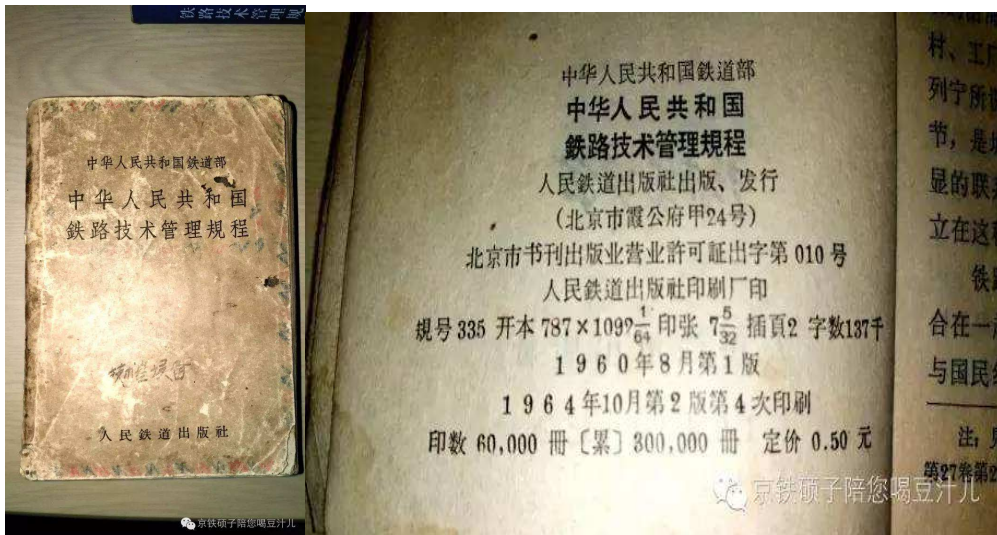 铁路技术管理规
中华人民共和国鉄道部
中华人民共和国
鉄路技术管理規程
人民鉄道出版社
京铁硕子陪您喝豆汁儿
中华人民共和国鉄道部
中华人民共和国
鉄路技术管理規程
人民鉄道出版社出版、发行
(北京市霞公府甲24号)
北京市书刊出版业营业許可証出字第 010 号
人民鉄道出版社印刷厂印
規号335 开本787×1092 1/64 印张 7 5/32 插頁2 字数137千
1960年8月第1版
1964年10月第2版第4次印刷
印数 60,000 冊〔累〕300,000 冊 定价 0.50 元
村、工
列宁所
节，是
显的联
立在这
鉄
合在一
与国民
注：
第27卷第2
京铁硕子陪您喝豆汁儿